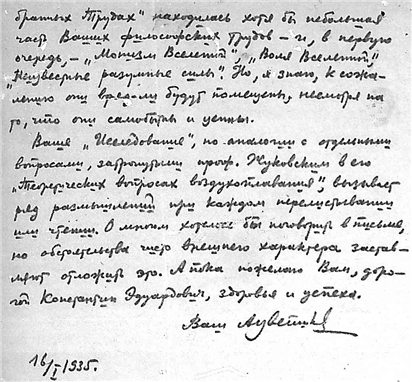 бранных Трудах" находилась хотя бы небольшая
часть Ваших философских трудов – и, в первую
очередь, – "Монизм Вселенной", "Воля Вселенной",
"Неизвестные разумные силы". Но, я знаю, к сожа-
лению они вряд-ли будут помещены, несмотря на
то, что они самобытны и ценны.
Ваши "Исследования", по аналогии с отдельными
вопросами, затронутыми проф. Жуковским в его
"Теоретических вопросах воздухоплавания", вызывает
ряд размышлений при каждом перелистывании
или чтении. О многом хотелось бы поговорить в письме,
но обстоятельства чисто внешнего характера застав-
ляют отложить это. А пока пожелаю Вам, доро-
гой Константин Эдуардович, здоровья и успеха.
Ваш
16/I 1935.